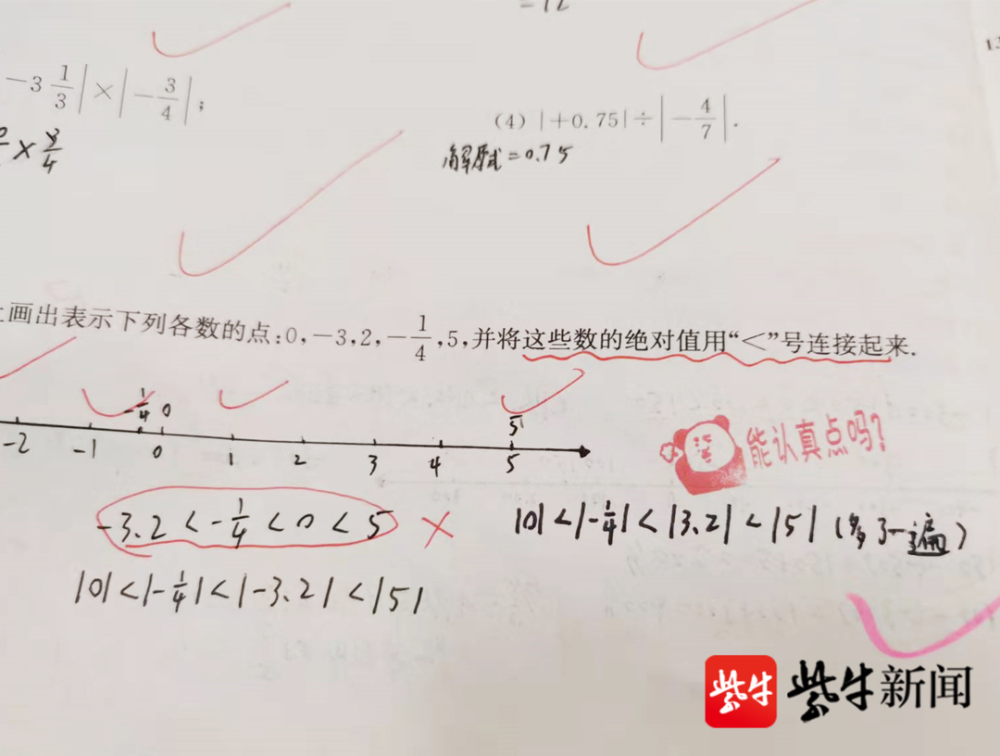 =12
-3 1/3|×|-3/4|;
(4)|+0.75|÷|-4/7|.
×3/4
解原式=0.75
上画出表示下列各数的点:0,-3,2,-1/4,5,并将这些数的绝对值用“<”号连接起来.
-1/4 0 5
-2 -1 0 1 2 3 4 5
能认真点吗?
-3.2<-1/4<0<5
|0|<|-1/4|<|3.2|<|5|(多了一遍)
|0|<|-1/4|<|-3.2|<|5|
紫牛 紫牛新闻